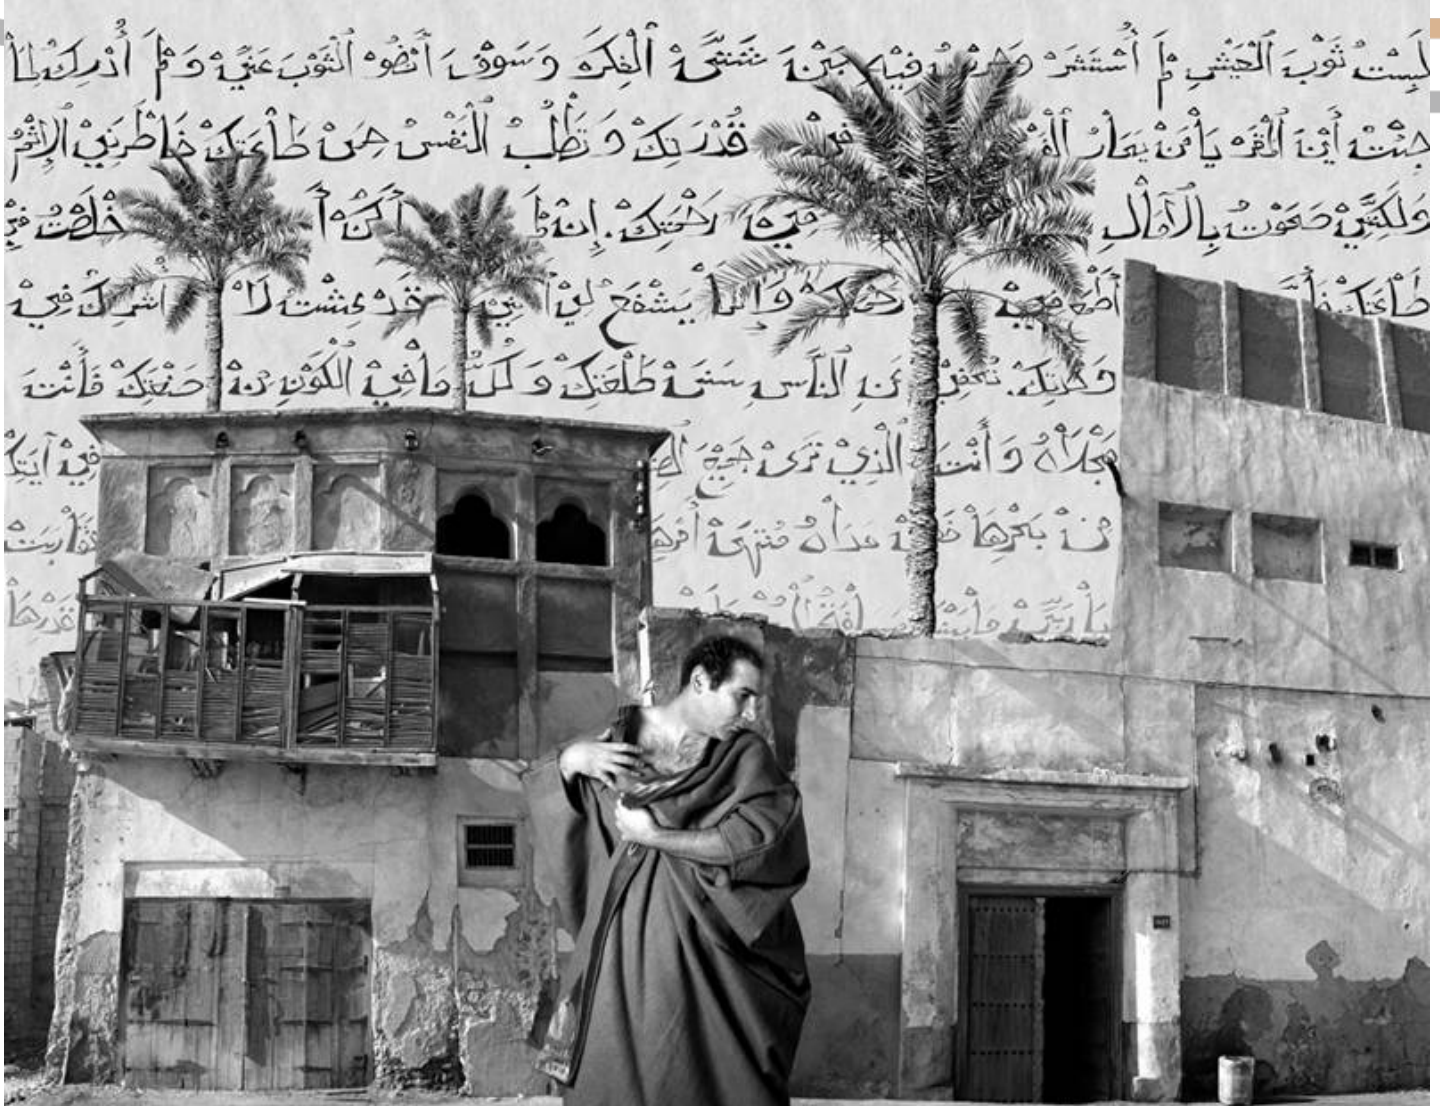 لَبِسْتُ ثَوْبَ الْعَيْشِ لَمْ أُسْتَشَرْ وَحِرْتُ فِيْهِ بَيْنَ شَتَّى الْفِكَرْ وَسَوْفَ أَنْضُو الثَّوْبَ عَنِّيْ وَلَمْ أُدْرِكْ لِمَا
جِئْتُ أَيْنَ الْمَفَرْ يَا مَنْ يَحَارُ قُدْرَتِكْ وَتَطْلُبُ النَّفْسُ حِمَى طَاعَتِكْ الْإِثْمُ
وَلَكِنَّنِيْ صَحَوْتُ بِالْآمَالِ فِيْ رَحْمَتِكْ. إِنْ لَمْ أَكُنْ أَخْلَصْتُ فِيْ
طَاعَتِكْ أَطْمَعُ فِيْ وَإِنَّمَا يَشْفَعُ لِيْ أَنَّنِيْ قَدْ عِشْتُ لَا أُشْرِكُ فِيْ
وَحْدَتِكْ. تُخْفِيْ عَنِ النَّاسِ سَنَى طَلْعَتِكْ وَكُلُّ مَا فِيْ الْكَوْنِ مِنْ صَنْعَتِكْ فَأَنْتَ
مَجْلَاهُ وَأَنْتَ الَّذِيْ تَرَى فِيْ آيَتِكْ
مِنْ بَحْرِهَا مَدَاهُ مُنْتَهَى تَقَارَبَتْ
يَا رَبِّ قَدْرِهَا